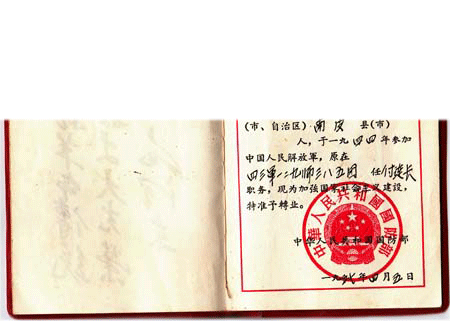 (市、自治区)南皮县(市)
人，于一九四四年参加
中国人民解放軍，原在
四三軍一二九师三八五团 任付連长
职务，现为加强国家社会主义建設，
特准予轉业。
中华人民共和国国防部
中華人民共和國國防部
一九 年四月五日